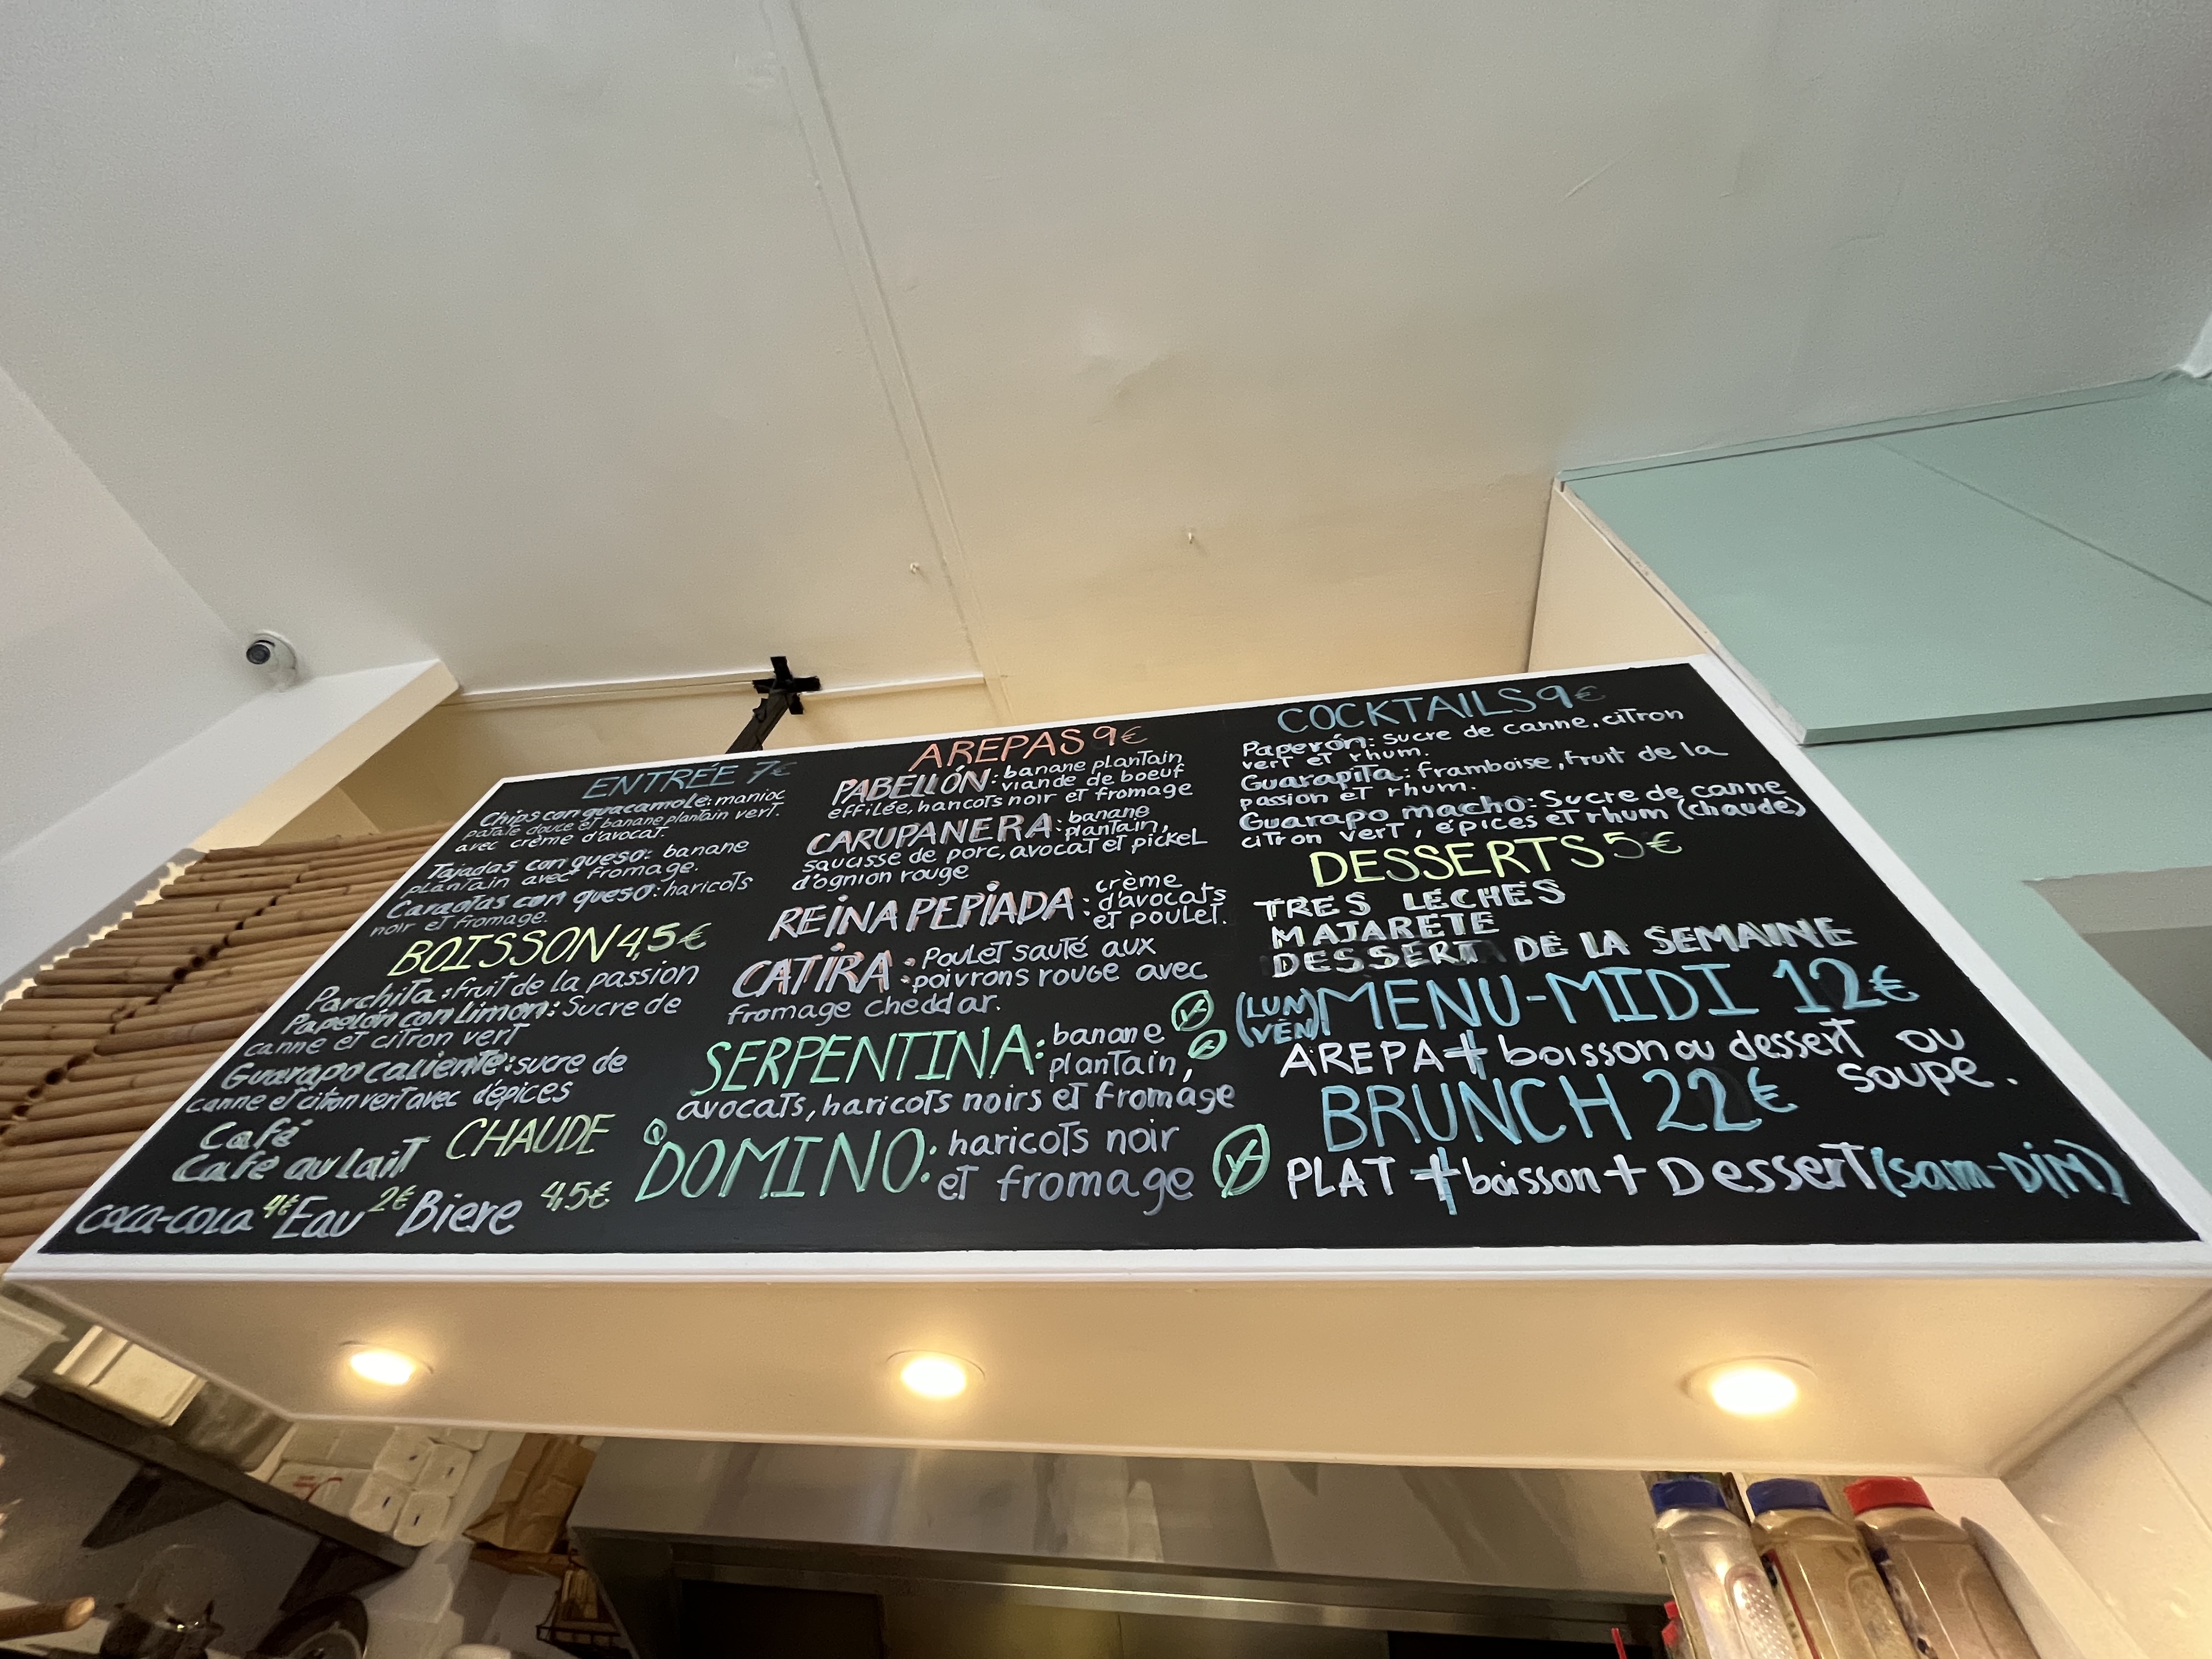 ENTRÉE 7€
Chips con guacamole: manioc
patate douce et banane plantain vert.
avec crème d'avocat.
Tajadas con queso: banane
plantain avec fromage.
Caraotas con queso: haricots
noir et fromage.
BOISSON 4,5€
Parchita: fruit de la passion
Papelón con Limon: Sucre de
canne et citron vert
Guarapo caliente: sucre de
canne et citron vert avec d'épices
Café
Café au lait CHAUDE
COCA-COLA 4€ Eau 2€ Biere 4,5€
AREPAS 9€
PABELLÓN: banane plantain
viande de boeuf
effilée, haricots noir et fromage
CARUPANERA: banane
plantain,
saucisse de porc, avocat et pickel
d'ognion rouge
REINA PEPIADA: crème
d'avocats
et poulet.
CATIRA: Poulet sauté aux
poivrons rouge avec
fromage cheddar.
SERPENTINA: banane
plantain,
avocats, haricots noirs et fromage
DOMINO: haricots noir
et fromage
COCKTAILS 9€
Paperón: sucre de canne, citron
vert et rhum.
Guarapita: framboise, fruit de la
passion et rhum.
Guarapo macho: Sucre de canne
citron vert, épices et rhum (chaude)
DESSERTS 5€
TRES LECHES
MAJARETE
DESSERT DE LA SEMAINE
(LUN
VEN) MENU-MIDI 12€
AREPA + boisson ou dessert ou
soupe.
BRUNCH 22€
PLAT + boisson + Dessert (sam-DiM)